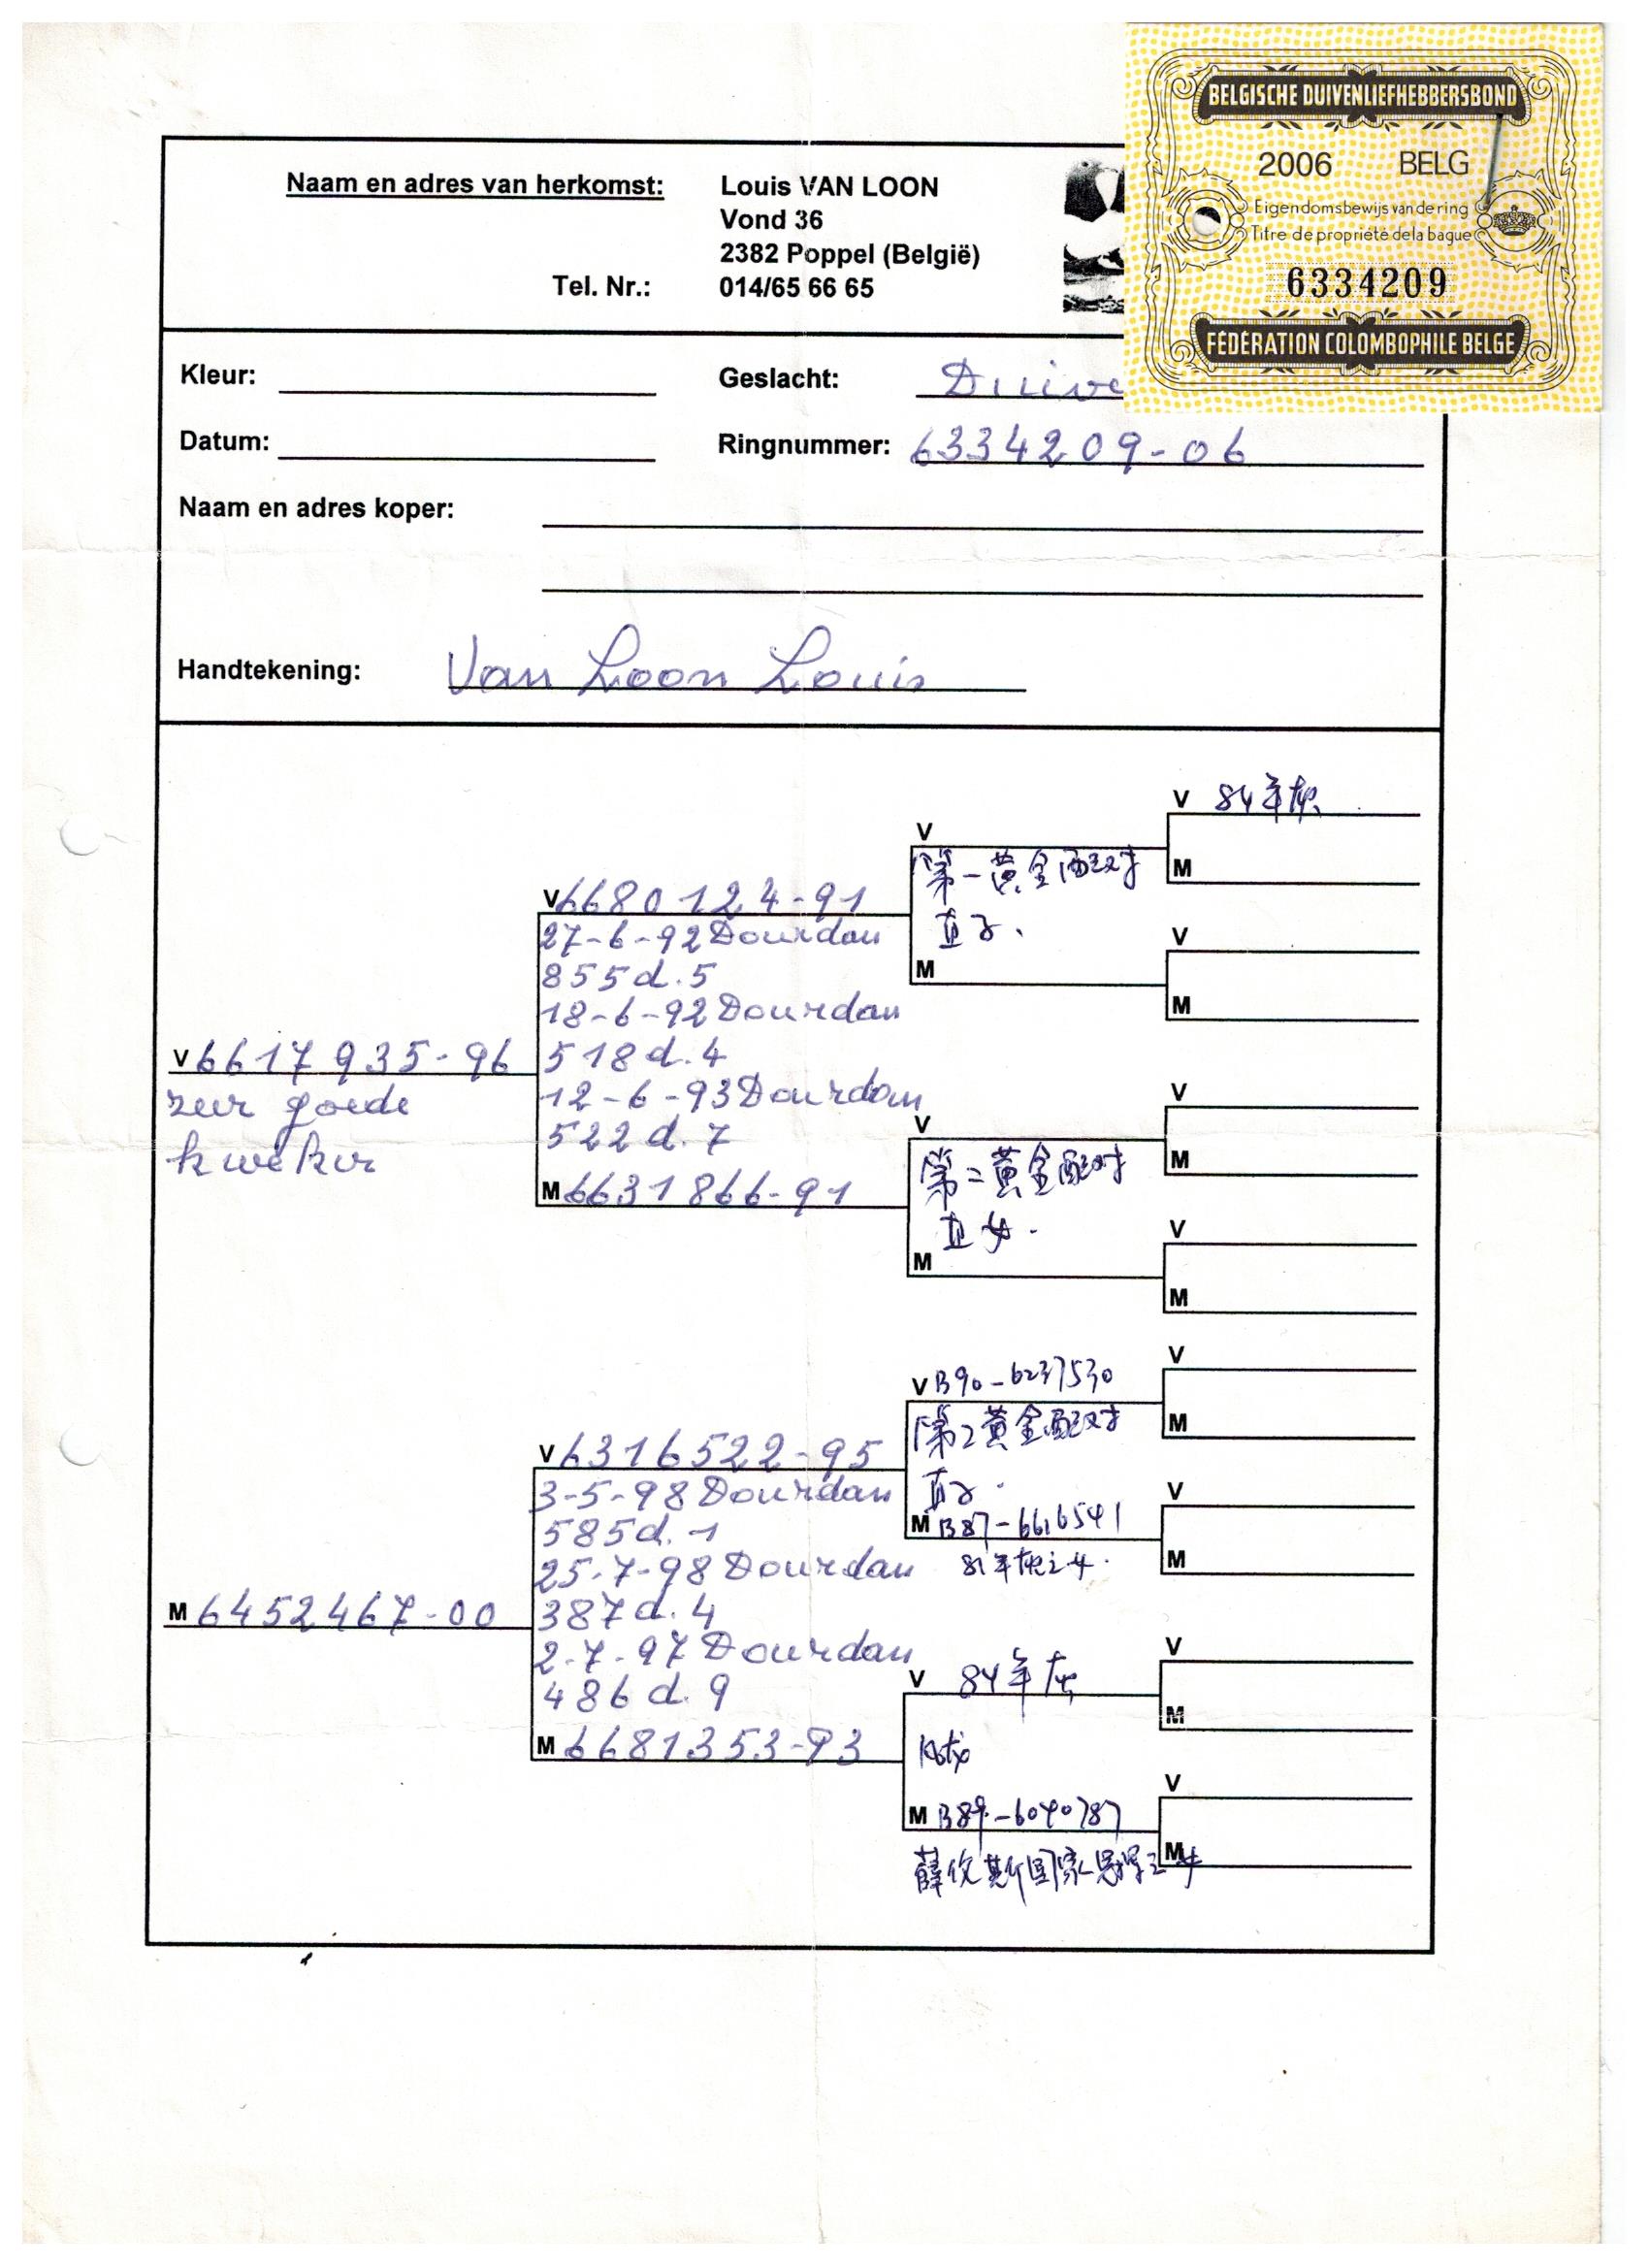 BELGISCHE DUIVENLIEFHEBBERSBOND
2006 BELG
Eigendomsbewijs van de ring
Titre de propriété de la bague
6334209
FÉDÉRATION COLOMBOPHILE BELGE
Naam en adres van herkomst: Louis VAN LOON
Vond 36
2382 Poppel (België)
Tel. Nr.: 014/65 66 65
Kleur: Geslacht: Duive
Datum: Ringnummer: 6334209-06
Naam en adres koper:
Handtekening: Van Loon Louis
V 6617935-96
zeer goede
kweker
V 6680124-91
27-6-92 Dourdan
855 d. 5
18-6-92 Dourdan
518 d. 4
12-6-93 Dourdan
522 d. 7
M 6631866-91
V
第一黄金配对
直子.
M
V 84年灰
M
V
M
V
第二黄金配对
直女.
M
V
M
V
M
M 6452467-00
V 6316522-95
3-5-98 Dourdan
585 d. 1
25-7-98 Dourdan
387 d. 4
2-7-97 Dourdan
486 d. 9
M 6681353-93
V B90-6237530
第2黄金配对
直子.
M B87-6616541
81年灰之女.
V
M
V
M
V 84年灰
M B89-6040787
国家
之女
V
M
V
M